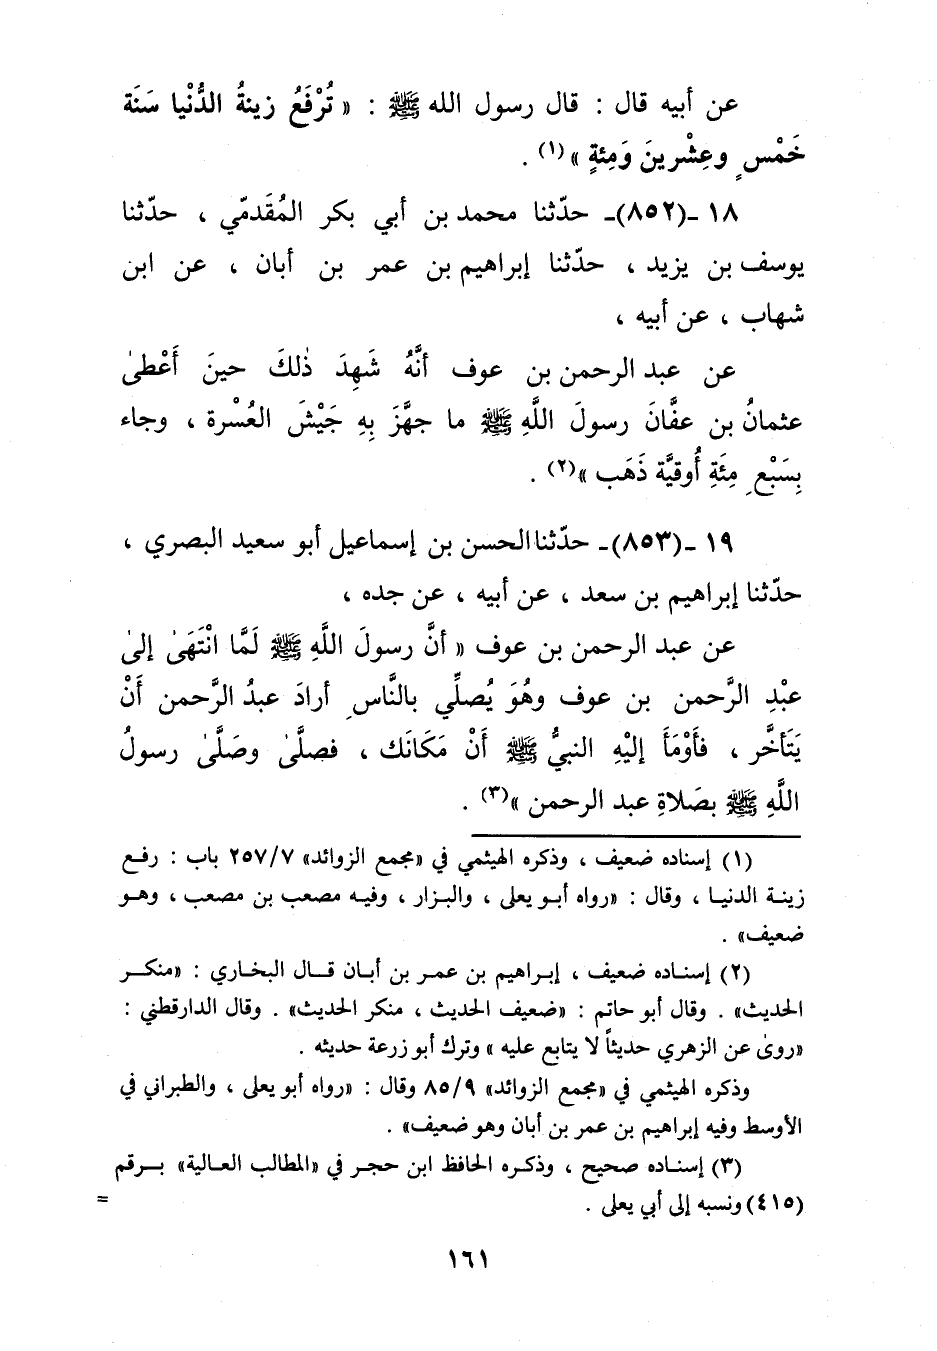 عن أبيه قال : قال رسول الله ﷺ : « تُرْفَعُ زينةُ الدُّنْيا سَنَة
خَمْسٍ وعِشْرينَ وَمِئةٍ »(١) .
١٨ ـ(٨٥٢)ـ حدّثنا محمد بن أبي بكر المُقَدمّي ، حدّثنا
يوسف بن يزيد ، حدّثنا إبراهيم بن عمر بن أبان ، عن ابن
شهاب ، عن أبيه ،
عن عبد الرحمن بن عوف أنَّهُ شَهِدَ ذٰلكَ حينَ أَعْطىٰ
عثمانُ بن عفَّانَ رسولَ اللَّهِ ﷺ ما جهَّزَ بِهِ جَيْشَ العُسْرة ، وجاء
بِسَبْعِ مِئَةِ أُوقيَّة ذَهَب »(٢) .
١٩ ـ(٨٥٣)ـ حدّثنا الحسن بن إسماعيل أبو سعيد البصري ،
حدّثنا إبراهيم بن سعد ، عن أبيه ، عن جده ،
عن عبد الرحمن بن عوف « أنَّ رسولَ اللَّهِ ﷺ لَمَّا انْتَهَىٰ إلىٰ
عبْدِ الرَّحمن بن عوف وهُوَ يُصلِّي بالنَّاسِ أرادَ عبدُ الرَّحمن أنْ
يَتَأخَّر ، فأَوْمَأَ إليْهِ النبيُّ ﷺ أَنْ مَكَانَك ، فصلَّىٰ وصَلَّىٰ رسولُ
اللَّهِ ﷺ بصَلاةِ عبد الرحمن »(٣) .
(١) إسناده ضعيف ، وذكره الهيثمي في «مجمع الزوائد» ٢٥٧/٧ باب : رفع
زينة الدنيا ، وقال : «رواه أبو يعلى ، والبزار ، وفيه مصعب بن مصعب ، وهو
ضعيف» .
(٢) إسناده ضعيف ، إبراهيم بن عمر بن أبان قال البخاري : «منكر
الحديث» . وقال أبو حاتم : «ضعيف الحديث ، منكر الحديث» . وقال الدارقطني :
«روىٰ عن الزهري حديثاً لا يتابع عليه » وترك أبو زرعة حديثه .
وذكره الهيثمي في «مجمع الزوائد» ٨٥/٩ وقال : «رواه أبو يعلى ، والطبراني في
الأوسط وفيه إبراهيم بن عمر بن أبان وهو ضعيف» .
(٣) إسناده صحيح ، وذكره الحافظ ابن حجر في «المطالب العالية» برقم
(٤١٥) ونسبه إلى أبي يعلى . =
١٦١